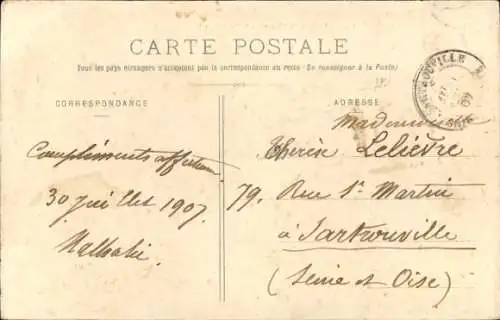 CARTE POSTALE
Tous les pays étrangers n'acceptent pas la correspondance au recto (Se renseigner à la Poste)
CORRESPONDANCE
ADRESSE
Compliments affectueux
30 juillet 1907.
Nathalie.
Mademoiselle
Thérèse Lelièvre
79, Rue St Martin
à Sartrouville
(Seine et Oise)